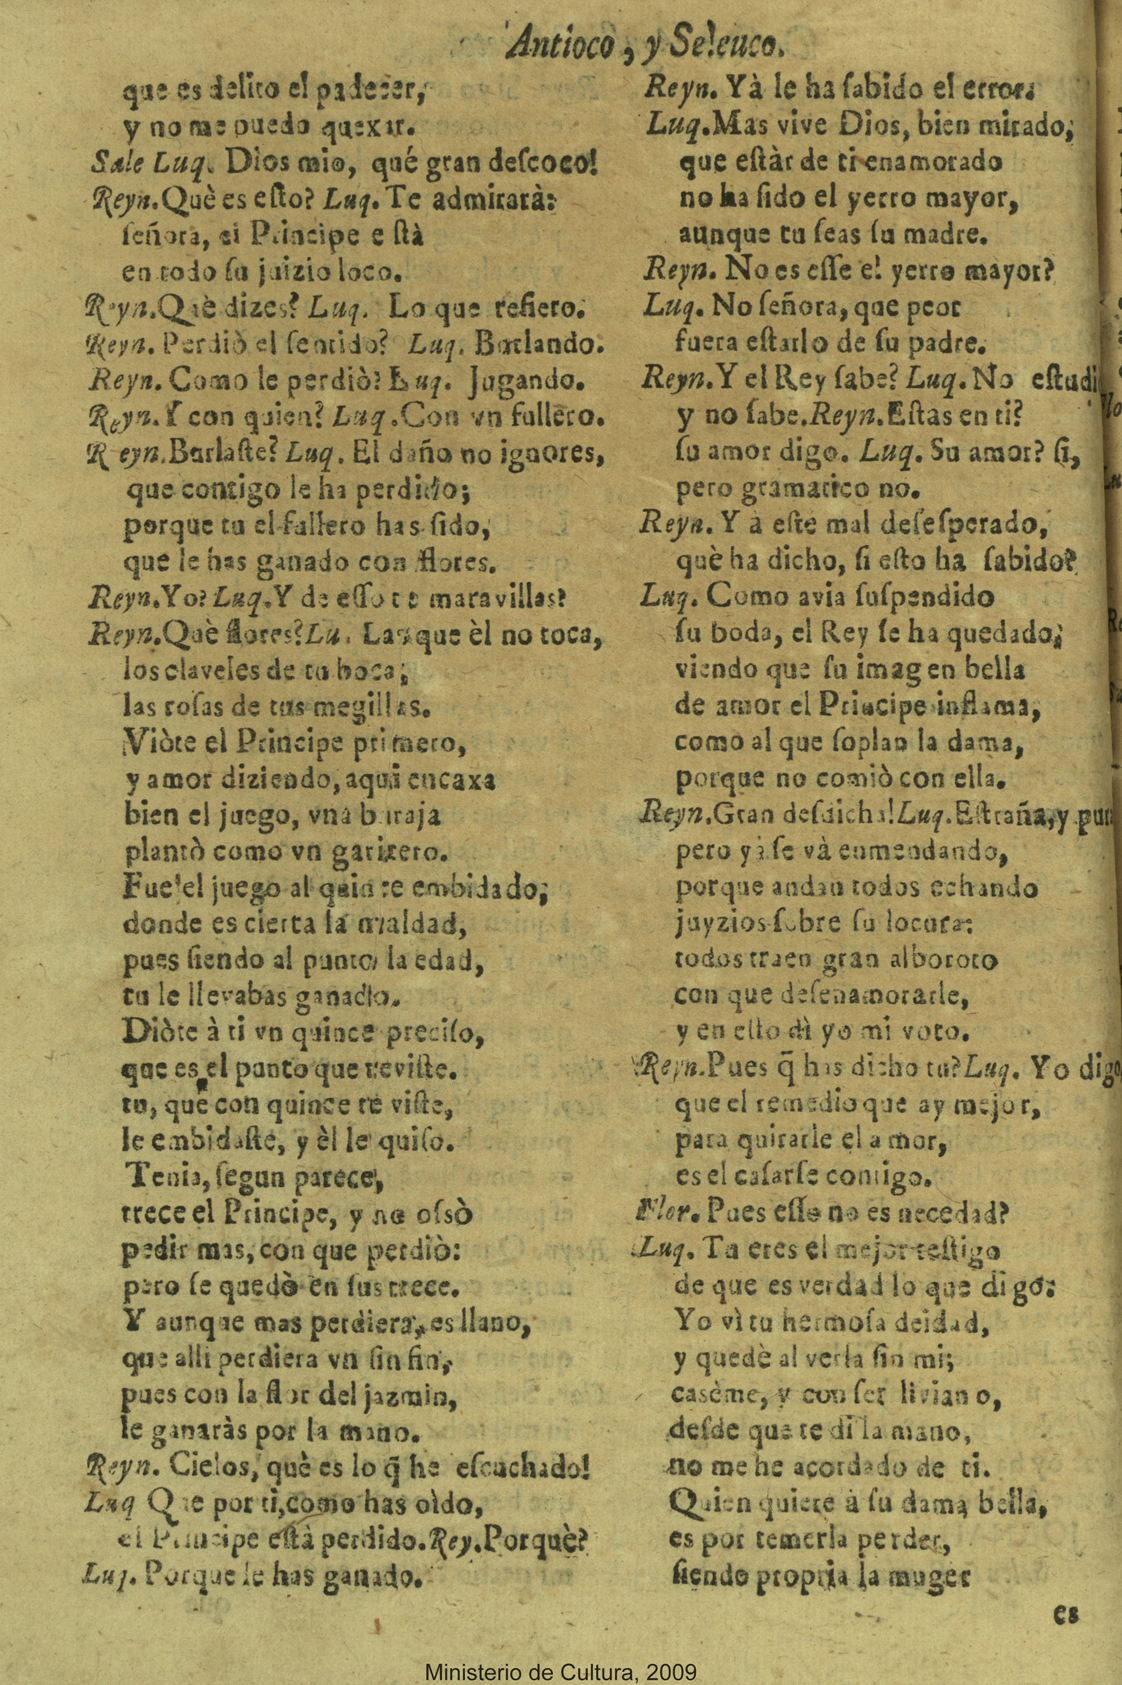 Antioco, y Seleuco.
que es delito el padecer,
y no me puedo quexar.
Sale Luq. Dios mio, qué gran descoco!
Reyn. Què es esto? Luq. Te admirarà:
señora, el Principe está
en todo su juizio loco.
Reyn. Què dizes? Luq. Lo que refiero.
Reyn. Perdiò el sentido? Luq. Burlando.
Reyn. Como le perdiò? Luq. Jugando.
Reyn. Y con quien? Luq. Con vn fullero.
Reyn. Burlaste? Luq. El daño no ignores,
que contigo le ha perdido;
porque tu el fullero has sido,
que le has ganado con flores.
Reyn. Yo? Luq. Y de esso te maravillas?
Reyn. Què flores? Lu. Las que èl no toca,
los claveles de tu boca;
las rosas de tus megillas.
Viòte el Principe primero,
y amor diziendo, aqui encaxa
bien el juego, vna baraja
plantò como vn garitero.
Fue el juego al quinze embidado;
donde es cierta la maldad,
pues siendo al punto la edad,
tu le llevabas ganado.
Diòte à ti vn quince preciso,
que es el punto que reviste.
tu, que con quince te viste,
le embidaste, y èl le quiso.
Tenia, segun parece,
trece el Principe, y no ossò
pedir mas, con que perdiò:
pero se quedò en sus trece.
Y aunque mas perdiera, es llano,
que alli perdiera vn sin fin,
pues con la flor del jazmin,
le ganaràs por la mano.
Reyn. Cielos, què es lo q̃ he escuchado!
Luq Que por ti, como has oìdo,
el Principe està perdido. Rey. Porquè?
Luq. Porque le has ganado.
Reyn. Yà le ha sabido el error.
Luq. Mas vive Dios, bien mirado,
que estàr de ti enamorado
no ha sido el yerro mayor,
aunque tu seas su madre.
Reyn. No es esse el yerro mayor?
Luq. No señora, que peor
fuera estarlo de su padre.
Reyn. Y el Rey sabe? Luq. No estudi
y no sabe. Reyn. Estàs en ti?
su amor digo. Luq. Su amor? si,
pero gramatico no.
Reyn. Y à este mal desesperado,
què ha dicho, si esto ha sabido?
Luq. Como avia suspendido
su boda, el Rey se ha quedado,
viendo que su imagen bella
de amor el Principe inflama,
como al que soplan la dama,
porque no comiò con ella.
Reyn. Gran desdicha! Luq. Estraña, y pur
pero yà se và enmendando,
porque andan todos echando
juyzios sobre su locura:
todos traen gran alboroto
con que desenamorarle,
y en ello dì yo mi voto.
Reyn. Pues q̃ has dicho tu? Luq. Yo digo
que el remedio que ay mejor,
para quitarle el amor,
es el casarse contigo.
Flor. Pues esso no es necedad?
Luq. Tu eres el mejor testigo
de que es verdad lo que digo:
Yo vì tu hermosa deidad,
y quedè al verla sin mi;
casème, y con ser liviano,
desde que te dì la mano,
no me he acordado de ti.
Quien quiere à su dama bella,
es por temerla perder,
siendo propria la muger
es
Ministerio de Cultura, 2009